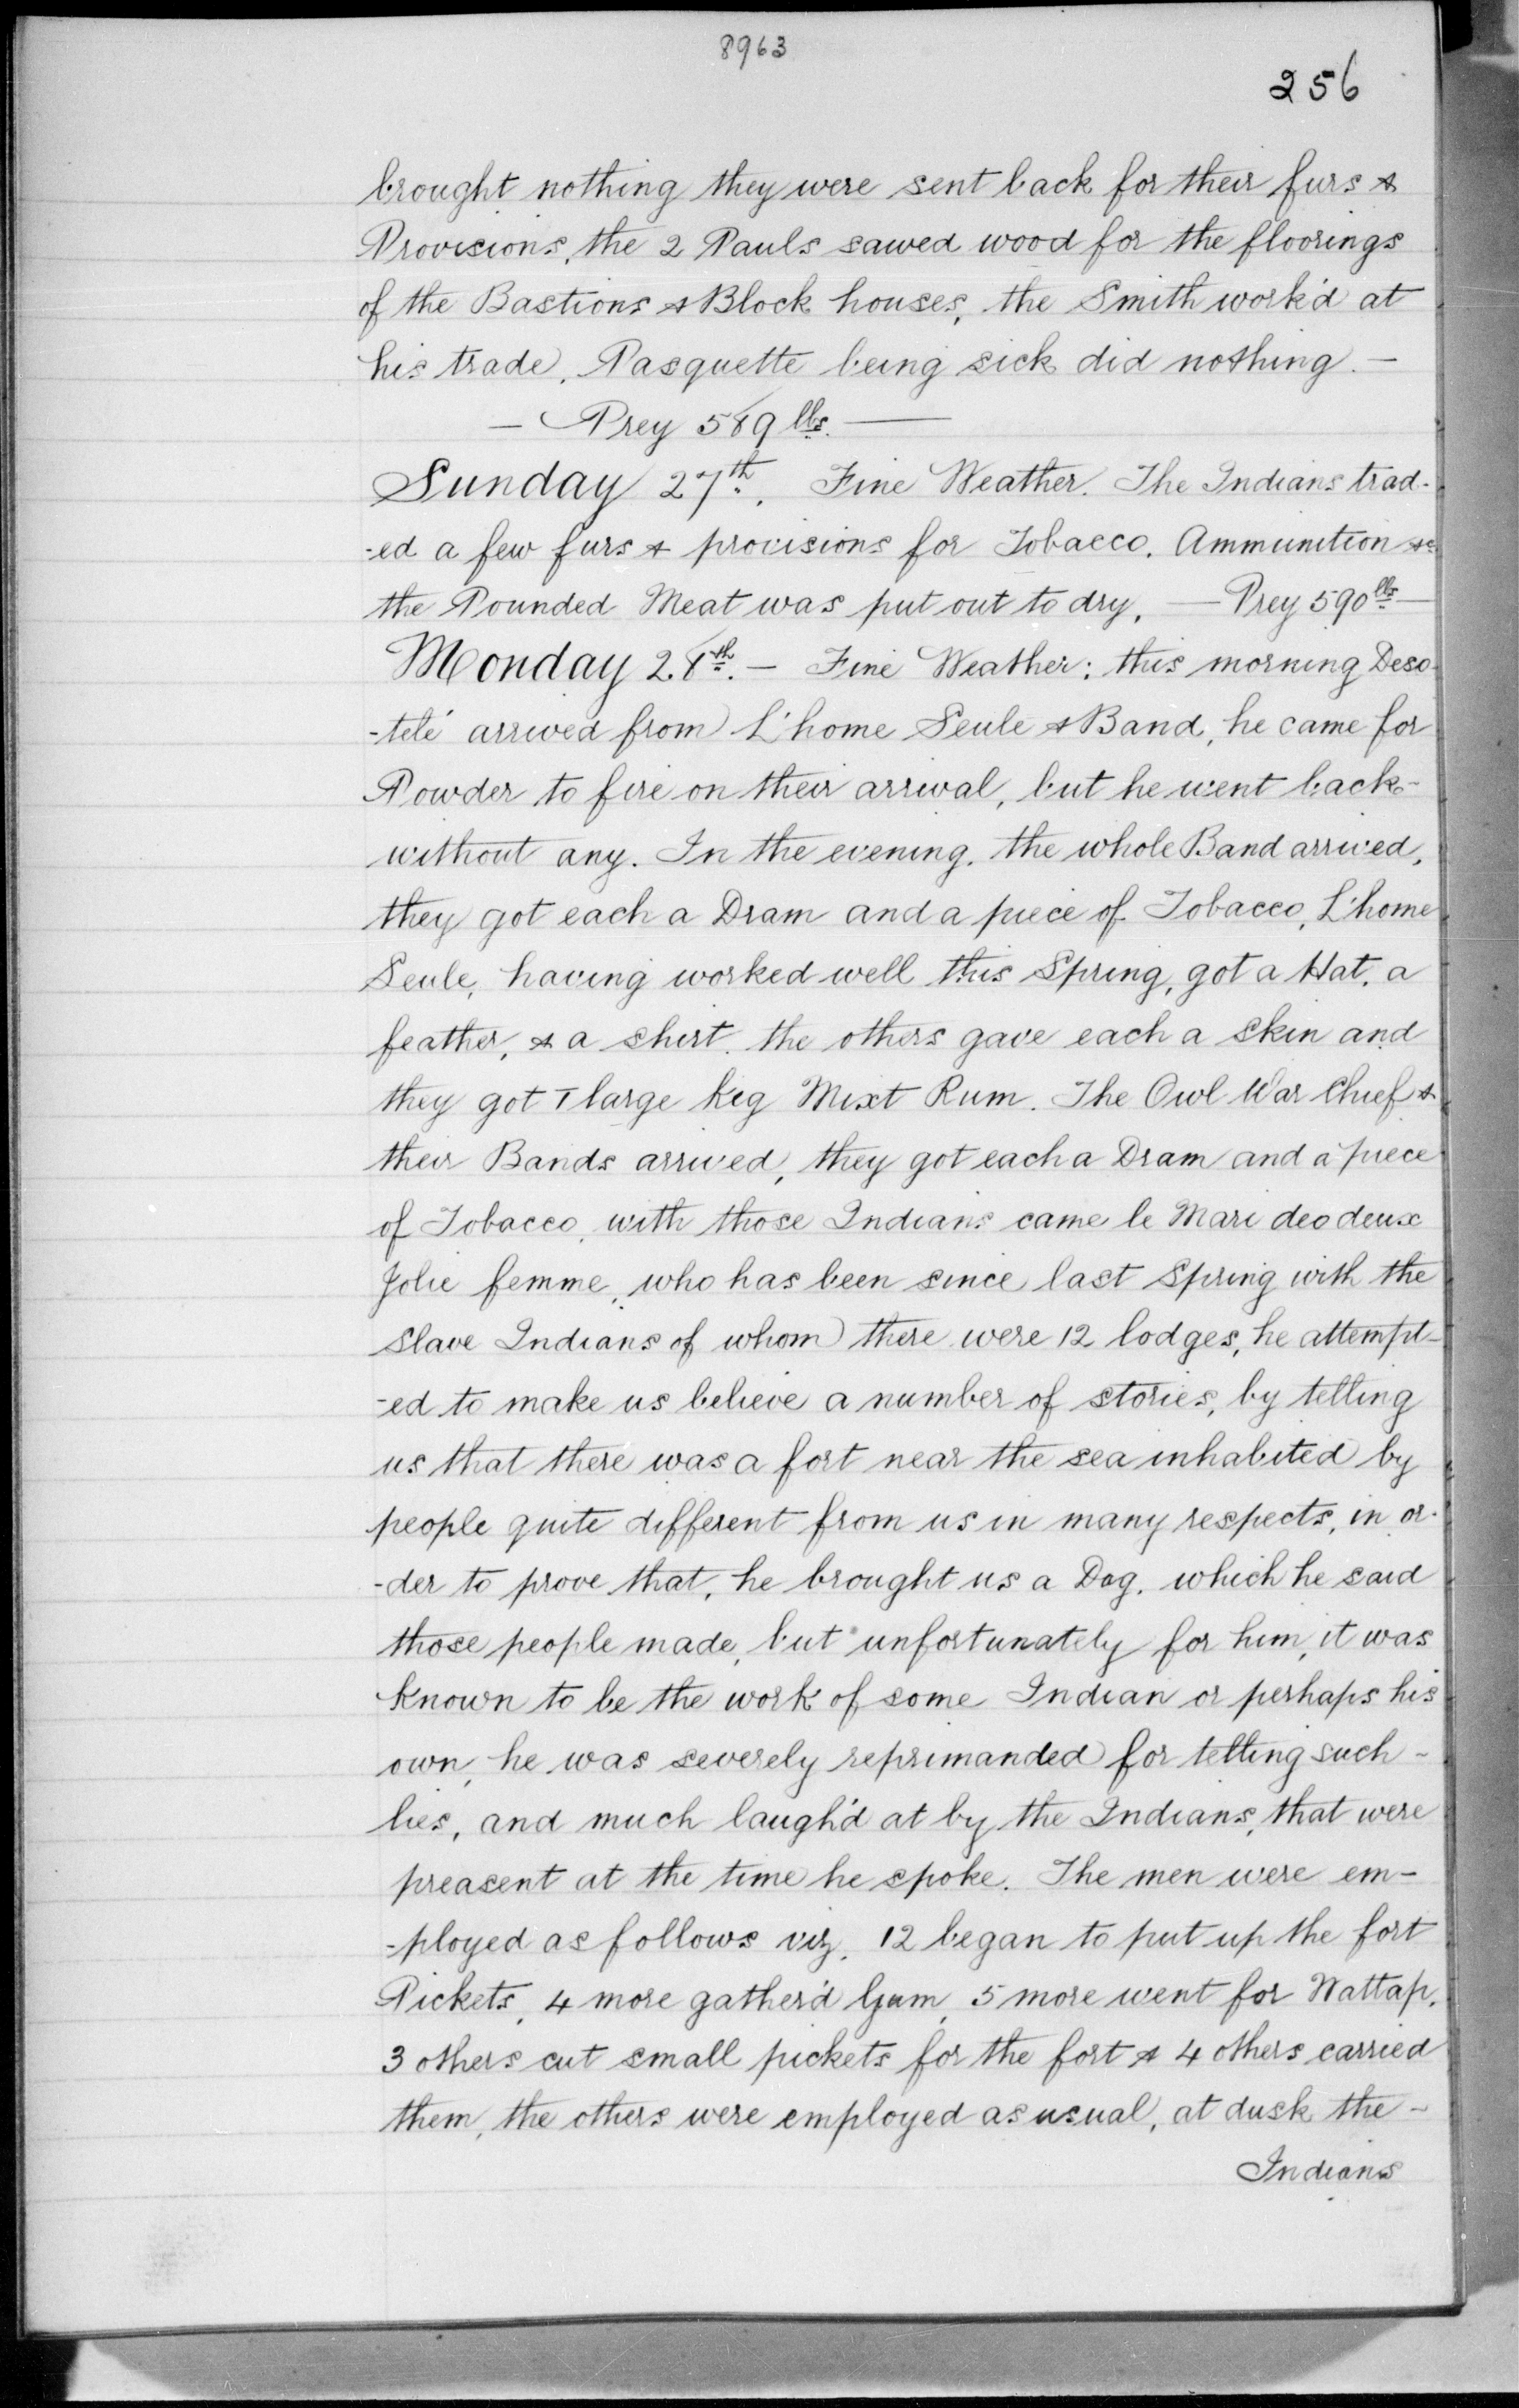 8963
256
brought nothing they were sent back for their furs &
Provisions, the 2 Pauls sawed wood for the floorings
of the Bastions & Block houses, the Smith work'd at
his trade, Pasquette being sick did nothing. —
— Prey 589 lbs. —
Sunday 27th. Fine Weather. The Indians trad-
-ed a few furs & provisions for Tobacco, Ammunition &c
the Pounded Meat was put out to dry. — Prey 590 lbs —
Monday 28th. — Fine Weather; this morning Deso-
-telé arrived from L'home Seule & Band, he came for
Powder to fire on their arrival, but he went back -
without any. In the evening, the whole Band arrived,
they got each a Dram and a piece of Tobacco, L'home
Seule, having worked well this Spring, got a Hat, a
feather, & a shirt, the others gave each a skin and
they got 1 large keg Mixt Rum. The Owl War Chief &
their Bands arrived, they got each a Dram and a piece
of Tobacco, with those Indians came le Mari deo deux
Jolie femme, who has been since last Spring with the
Slave Indians of whom there were 12 lodges, he attempt-
-ed to make us believe a number of stories, by telling
us that there was a fort near the sea inhabited by
people quite different from us in many respects, in or-
-der to prove that, he brought us a Dag, which he said
those people made, but unfortunately for him, it was
known to be the work of some Indian or perhaps his
own, he was severely reprimanded for telling such -
lies, and much laugh'd at by the Indians, that were
preasent at the time he spoke. The men were em-
-ployed as follows viz, 12 began to put up the fort
Pickets, 4 more gather'd Gum, 5 more went for Wattap,
3 others cut small pickets for the fort & 4 others carried
them, the others were employed as usual, at dusk the -
Indians